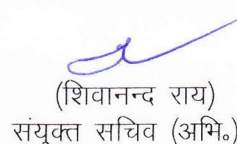 (शिवानन्द राय)
संयुक्त सचिव (अभि०)